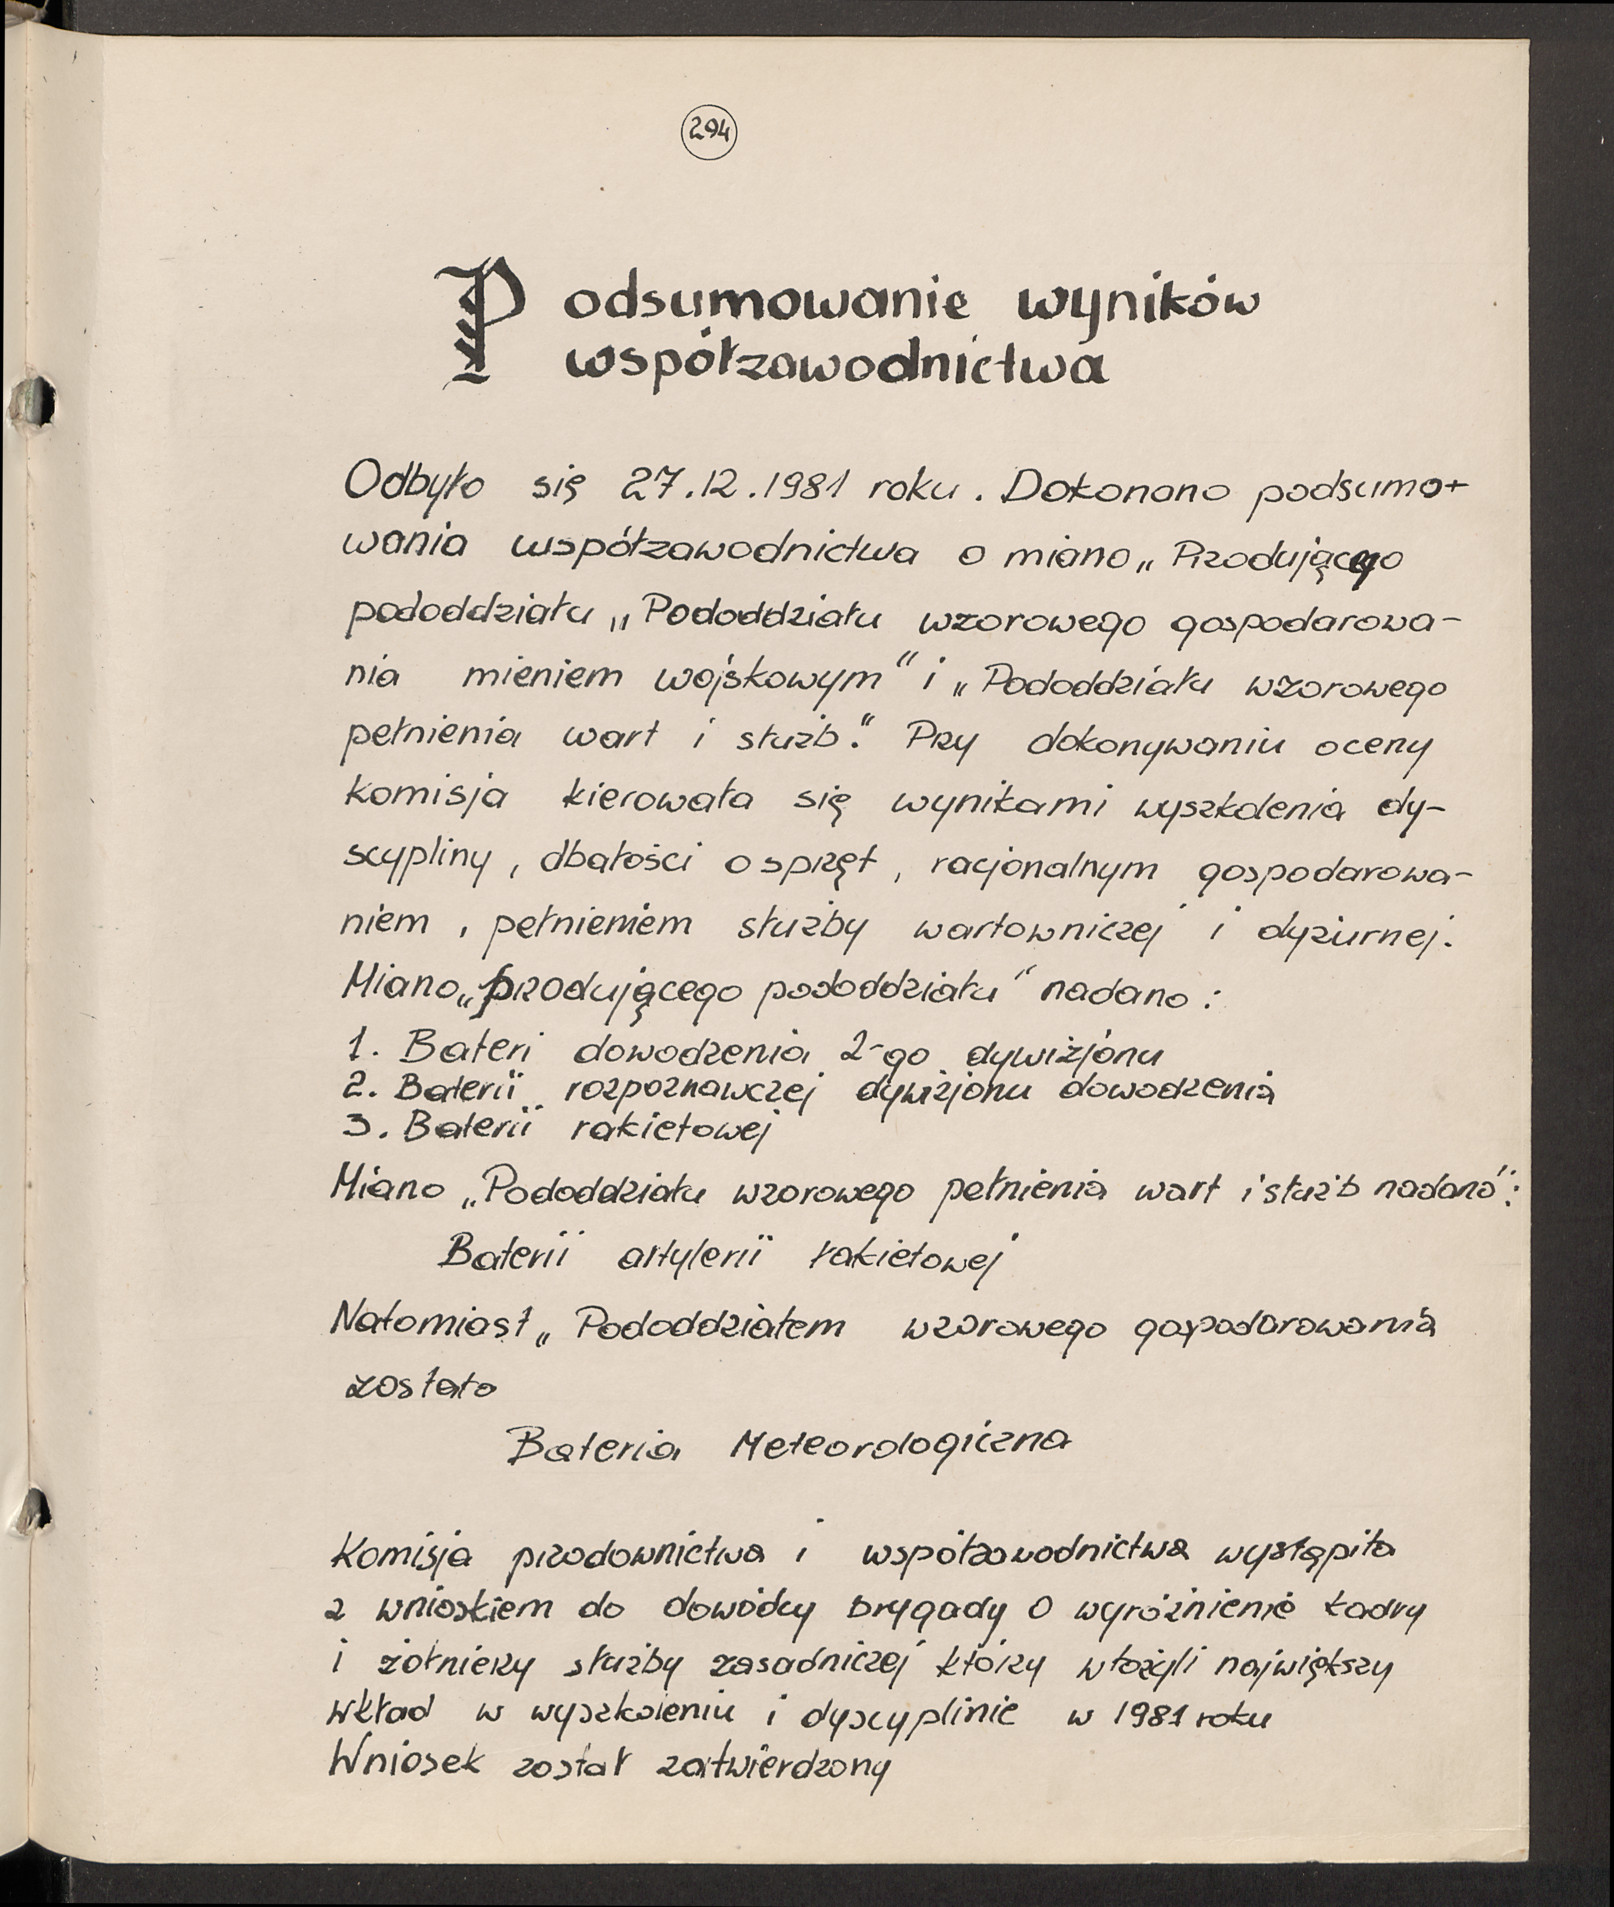 294
Podsumowanie wyników
współzawodnictwa
Odbyło się 27.12.1981 roku. Dokonano podsumo-
wania współzawodnictwa o miano „Przodującego
pododdziału „Pododdziału wzorowego gospodarowa-
nia mieniem wojskowym" i „Pododdziału wzorowego
pełnienia wart i służb." Przy dokonywaniu oceny
komisja kierowała się wynikami wyszkolenia dy-
scypliny, dbałości o sprzęt, racjonalnym gospodarowa-
niem, pełnieniem służby wartowniczej i dyżurnej.
Miano „przodującego pododdziału" nadano:
1. Bateri dowodzenia 2-go dywizjonu
2. Baterii rozpoznawczej dywizjonu dowodzenia
3. Baterii rakietowej
Miano „Pododdziału wzorowego pełnienia wart i służb nadano":
Baterii artylerii rakietowej
Natomiast „Pododdziałem wzorowego gospodarowania
zostało
Bateria Meteorologiczna
Komisja przodownictwa i współzawodnictwa wystąpiła
z wnioskiem do dowódcy brygady o wyróżnienie kadry
i żołnierzy służby zasadniczej którzy włożyli największy
wkład w wyszkoleniu i dyscyplinie w 1981 roku
Wniosek został zatwierdzony